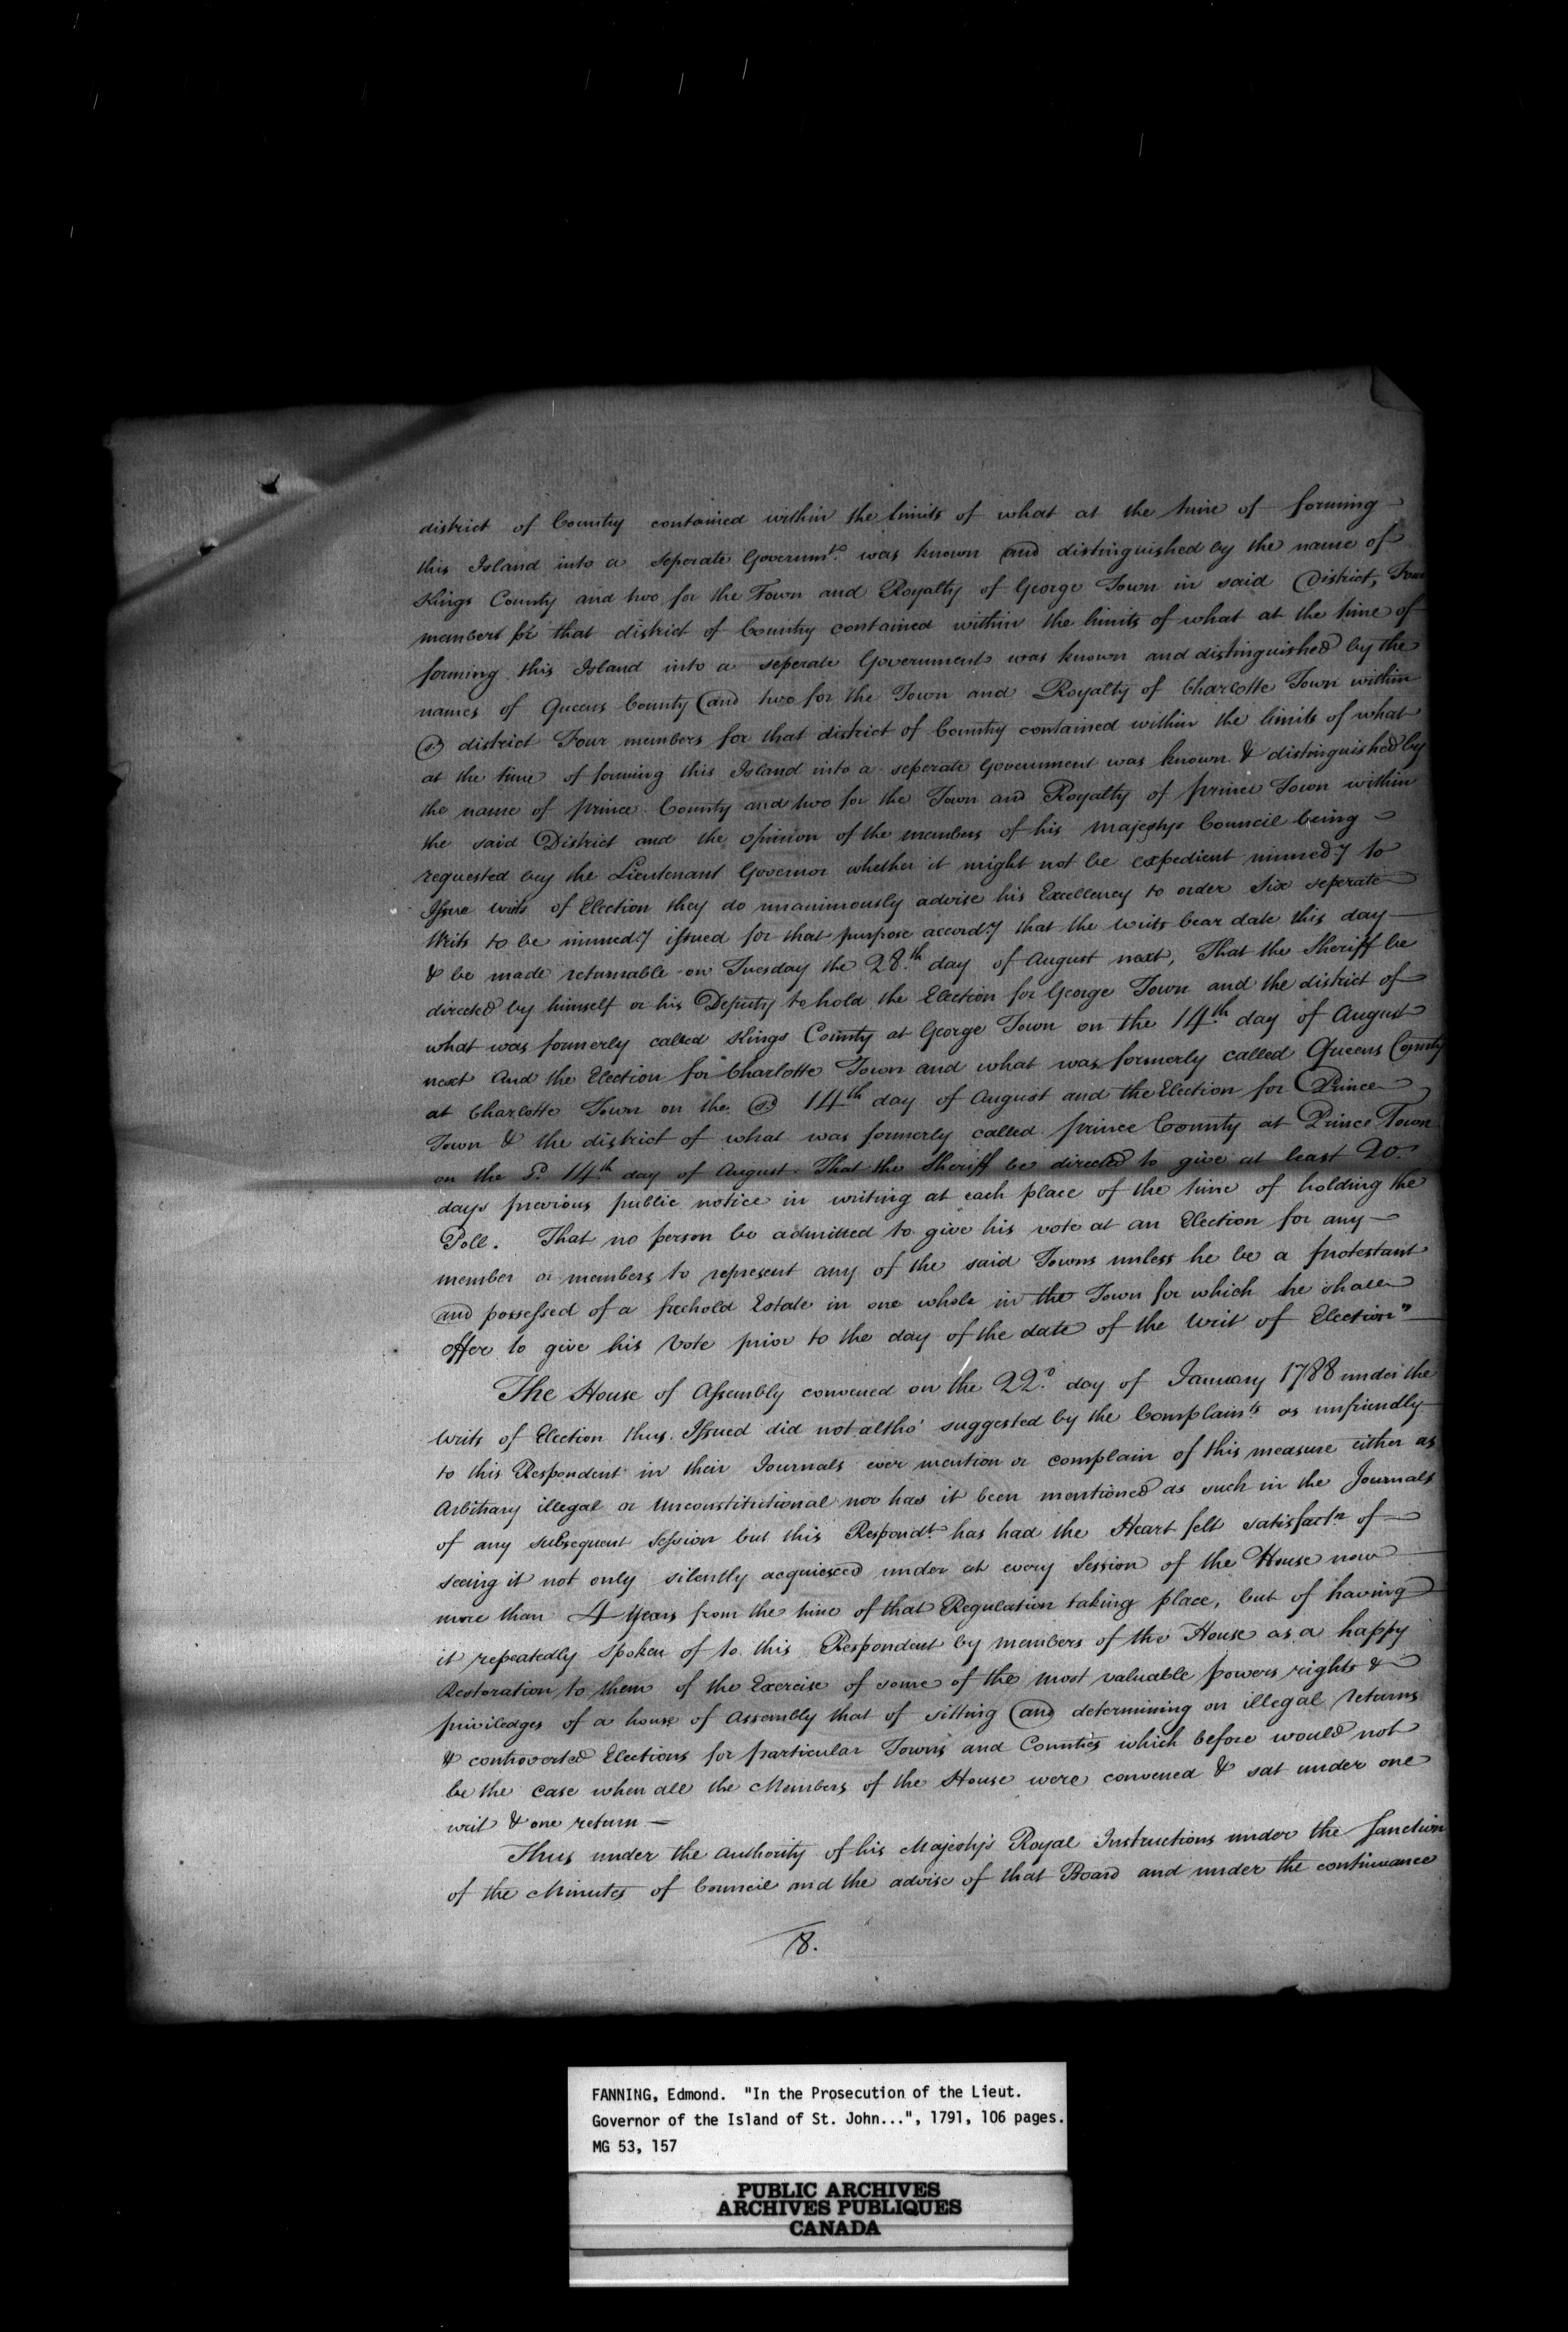 district of Country contained within the limits of what at the time of forming
this Island into a seperate Governmt. was known and distinguished by the name of
Kings County and two for the Town and Royalty of George Town in said District, Four
members for that district of Country contained within the limits of what at the time of
forming this Island into a seperate Government was known and distinguished by the
names of Queens County and two for the Town and Royalty of Charlotte Town within
sd. district Four members for that district of Country contained within the limits of what
at the time of forming this Island into a seperate Government was known & distinguished by
the name of prince County and two for the Town and Royalty of prince Town within
the said District and the opinion of the members of his Majestys Council being
requested by the Lieutenant Governor whether it might not be expedient immedy to
Issue writs of Election they do unanimously advise his Excellency to order Six seperate
Writs to be immedy issued for that purpose accordy that the writs bear date this day
& be made returnable on Tuesday the 28th day of August next, That the Sheriff be
directed by himself or his Deputy to hold the Election for George Town and the district of
what was formerly called Kings County at George Town on the 14th day of August
next And the Election for Charlotte Town and what was formerly called Queens County
at Charlotte Town on the sd. 14th day of August and the Election for Prince
Town & the district of what was formerly called prince County at Prince Town
on the sd. 14th day of August. That the Sheriff be directed to give at least 20
days previous public notice in writing at each place of the time of holding the
Poll. That no person be admitted to give his vote at an Election for any
member or members to represent any of the said Towns unless he be a protestant
and possessed of a freehold Estate in one whole in the Town for which he shall
offer to give his Vote prior to the day of the date of the Writ of Election"
The House of Assembly convened on the 22d. day of January 1788 under the
Writs of Election thus Issued did not altho' suggested by the Complaints as unfriendly
to this Respondent in their Journals ever mention or complain of this measure either as
Arbitrary illegal or Unconstitutional nor has it been mentioned as such in the Journals
of any subsequent Session but this Respondt. has had the Heart felt satisfactn of
seeing it not only silently acquiesced under at every Session of the House now
more than 4 Years from the time of that Regulation taking place, but of having
it repeatedly spoken of to this Respondent by members of the House as a happy
Restoration to them of the Exercise of some of the most valuable powers rights &
priviledges of a house of Assembly that of sitting and determining on illegal returns
& controverted Elections for particular Towns and Counties which before would not
be the case when all the Members of the House were convened & sat under one
writ & one return —
Thus under the Authority of his Majesty's Royal Instructions under the Sanction
of the Minutes of Council and the advise of that Board and under the continuance
8.
FANNING, Edmond. "In the Prosecution of the Lieut.
Governor of the Island of St. John...", 1791, 106 pages.
MG 53, 157
PUBLIC ARCHIVES
ARCHIVES PUBLIQUES
CANADA